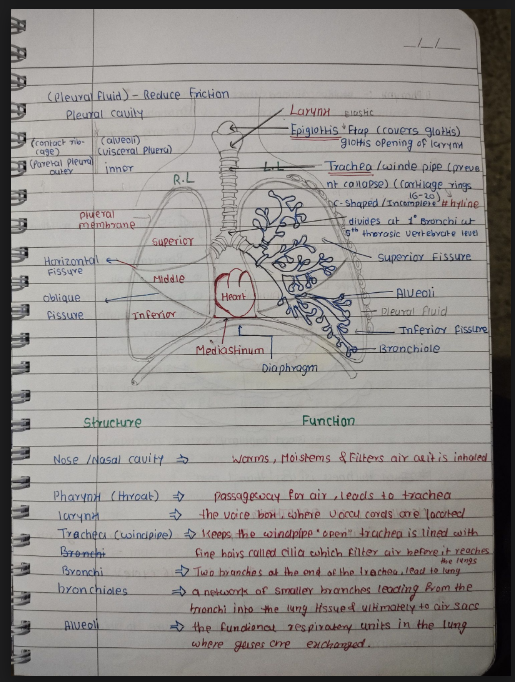 _/_/_
(Pleural fluid) - Reduce Friction
Pleural cavity
(contact rib-
age)
(Parietal pleura)
outer
(alveoli)
(visceral Pluera)
inner
Larynx Elastic
Epiglottis * Flap (covers glottis)
glottis opening of larynx
Trachea / winde pipe (preve
nt collapse) (cartilage rings
16-20)
C-shaped / Incomplete # hyline
divides at 1° Bronchi at
5th thorasic vertebrate level
R.L
L.L
Plueral
membrane
Superior
Superior fissure
Horizontal
fissure
Middle
Heart
Oblique
fissure
Inferior
Alveoli
Pleural fluid
Inferior fissure
Bronchiole
Mediastinum
Diaphragm
Structure Function
Nose /Nasal cavity ⇒ Warms, Moistems & Filters air as it is inhaled
Pharynx (throat) ⇒ passageway for air, leads to trachea
larynx ⇒ the voice box, where vocal cords are located
Trachea (windpipe) ⇒ Keeps the windpipe "open" trachea is lined with
Bronchi fine hairs called cilia which filter air before it reaches
the lungs
Bronchi ⇒ Two branches at the end of the trachea, lead to lung
bronchioles ⇒ a networks of smaller branches leading from the
bronchi into the lung tissue & ultimately to air sacs
Alveoli ⇒ the functional respiratory units in the lung
where gases are exchanged.